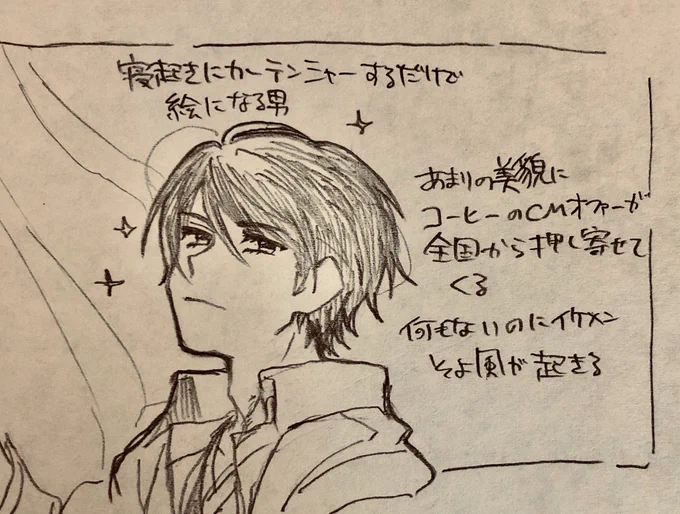 寝起きにカーテンシャーするだけで
絵になる男
あまりの美貌に
コーヒーのCMオファーが
全国から押し寄せて
くる
何もないのにイケメン
そよ風が起きる